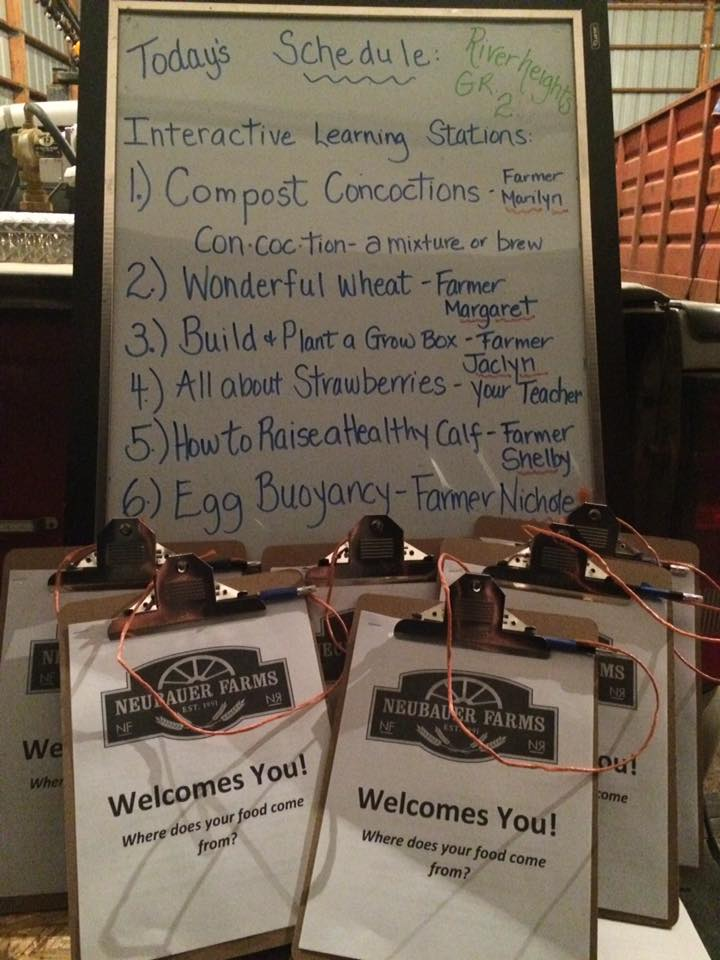 Today's Schedule:
Riverheights
GR. 2
Interactive Learning Stations:
1.) Compost Concoctions - Farmer Marilyn
Con·coc·tion- a mixture or brew
2.) Wonderful Wheat - Farmer
Margaret
3.) Build & Plant a Grow Box - Farmer
Jaclyn
4.) All about Strawberries - your Teacher
5.) How to Raise a Healthy Calf - Farmer
Shelby
6.) Egg Buoyancy - Farmer Nichole
NEUBAUER FARMS
EST. 1911
NF NR
Welcomes You!
Where does your food come
from?
NEUBAUER FARMS
NF NR
Welcomes You!
Where does your food come
from?
N
We
Wher
MS
NR
ou!
come